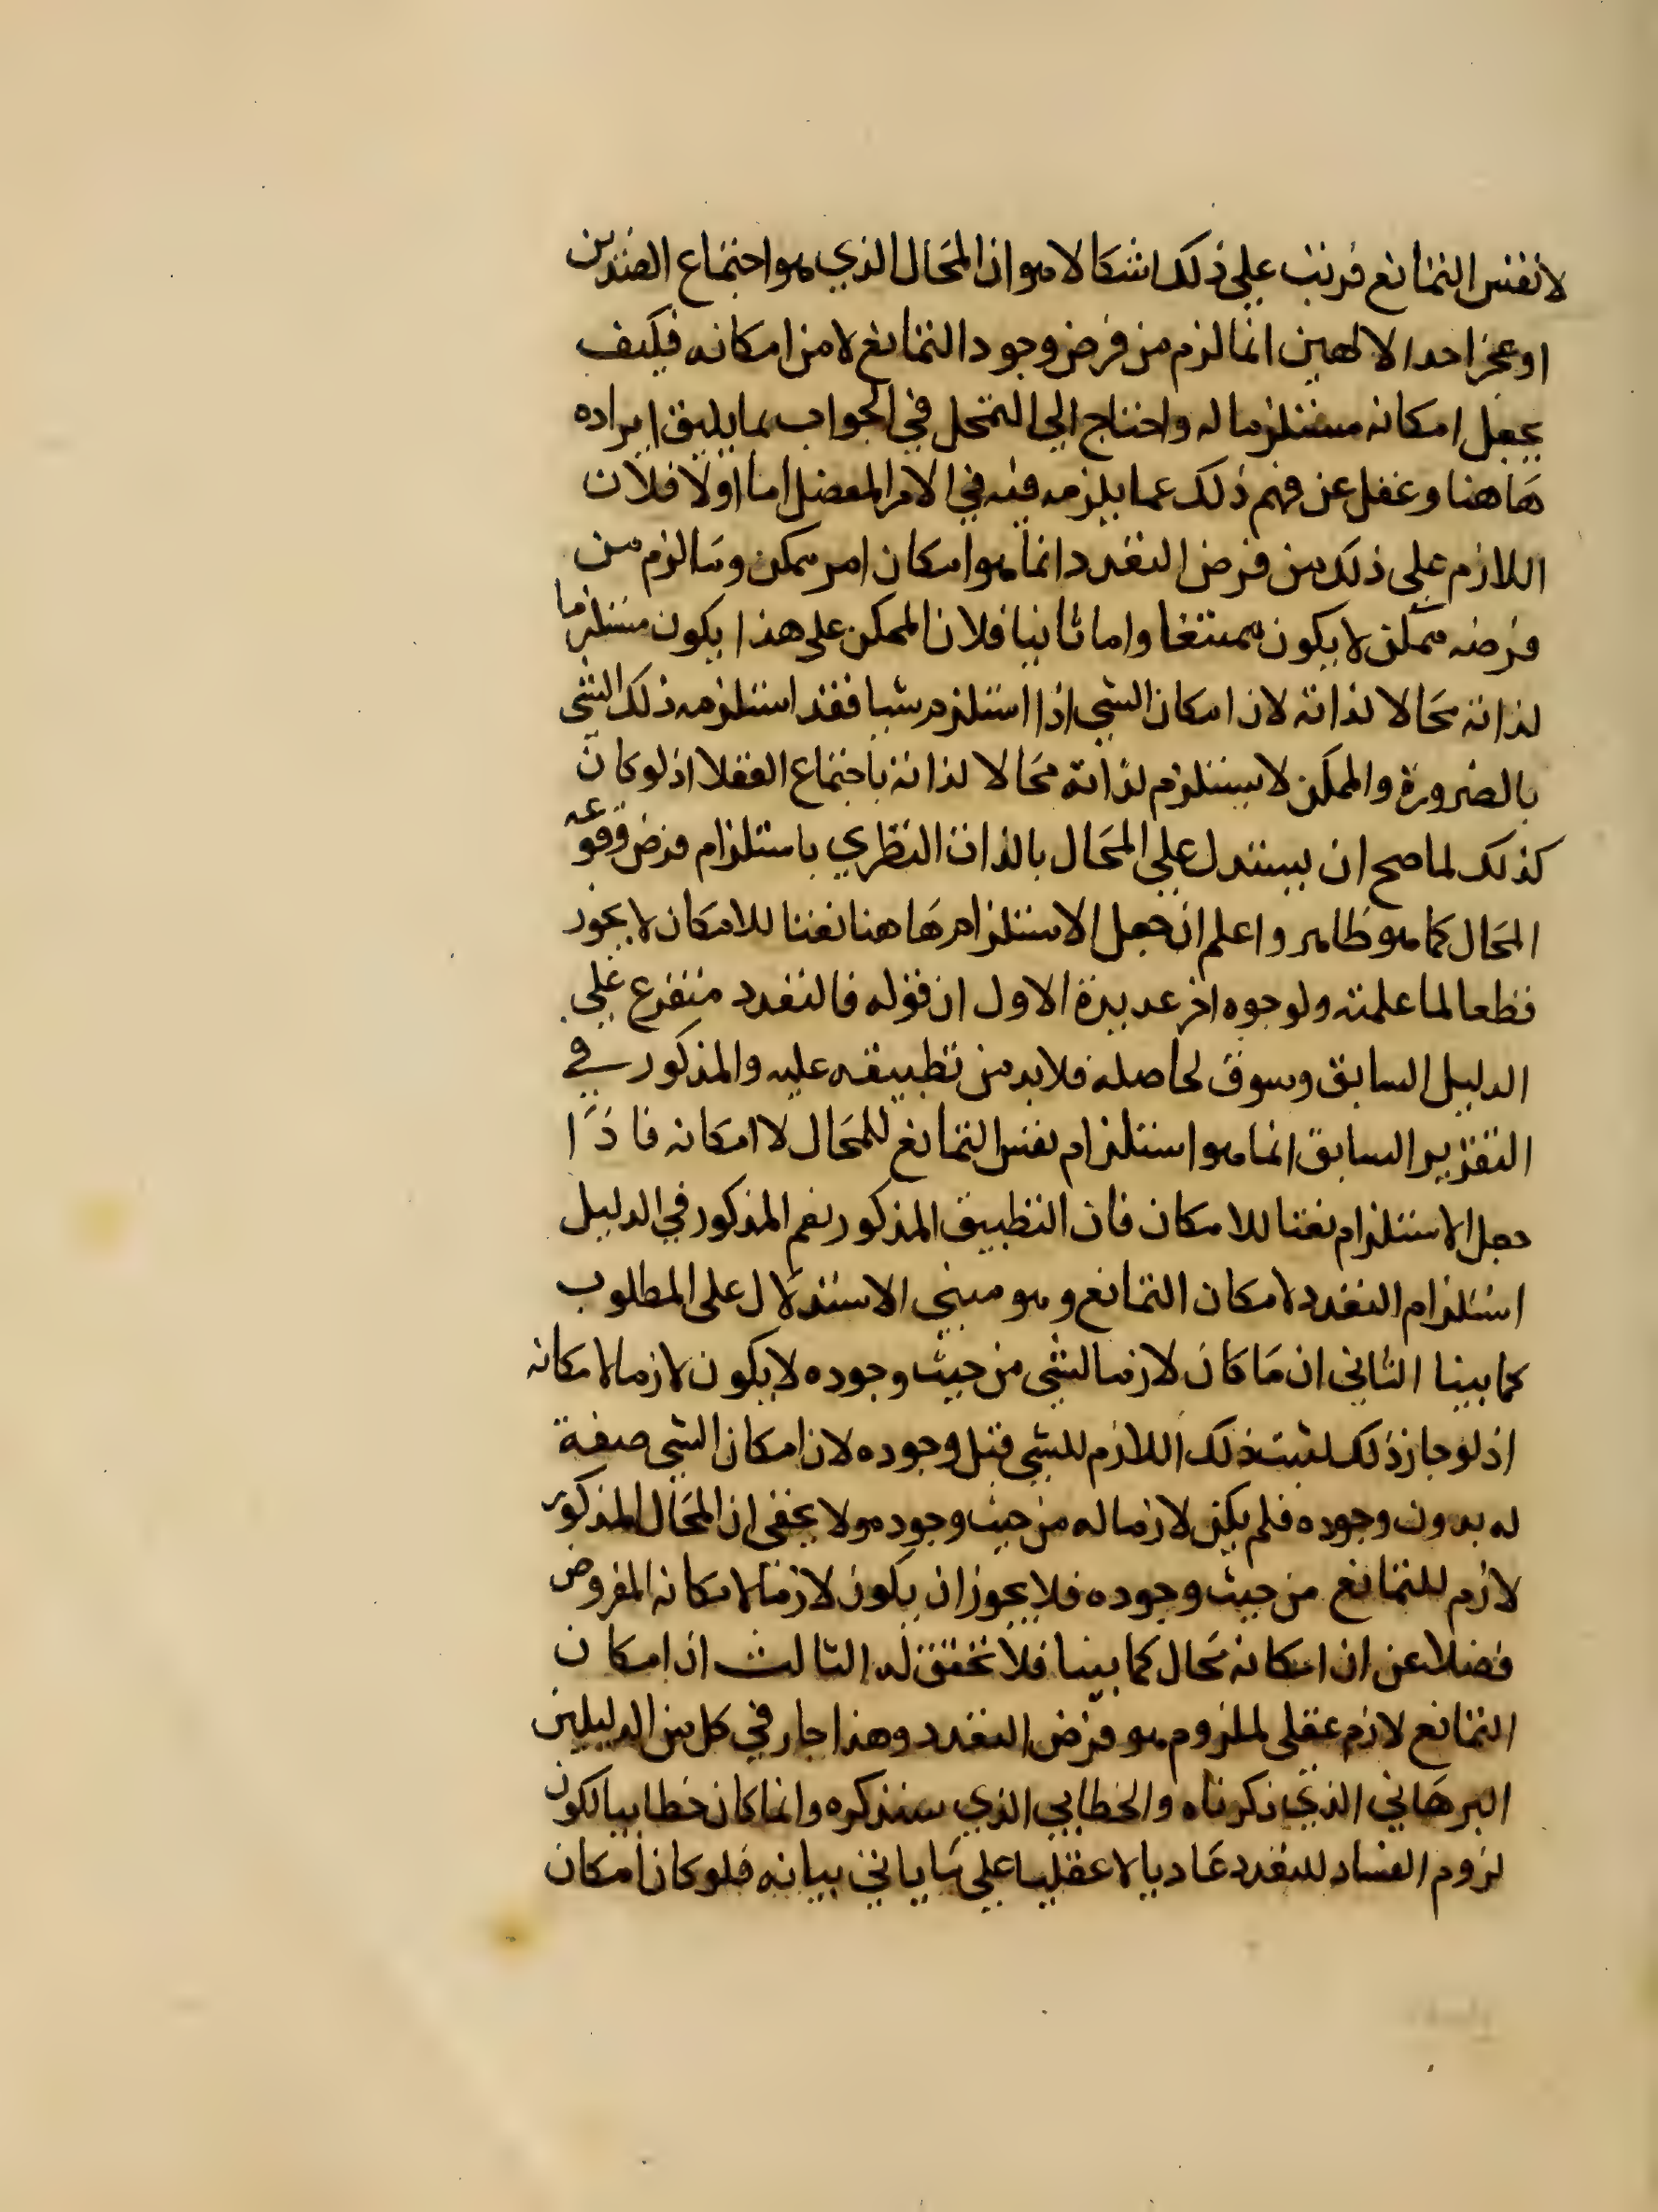 لا نفس التمانع فرتب على ذلك اشكالا هو ان المحال الذي هو اجتماع الضدين
او عجز احد الالهين انما لزم من فرض وجود التمانع لا من امكانه فكيف
يجعل امكانه مستلزما له واحتاج الي التمحل في الجواب بما يليق ايراده
هاهنا وغفل عن فهم ذلك عما يلزمه فيه في الامر المعضل اما اولا فلان
اللازم علي ذلك من فرض التعدد انما هو امكان امر ممكن وما لزم من
فرضه ممكن لا يكون ممتنعا واما ثانيا فلان الممكن على هذا يكون مستلزما
لذاته محالا لذاته لان امكان الشي اذا استلزم شيا فقد استلزمه ذلك الشي
بالضرورة والممكن لا يستلزم لذاته محالا لذاته باجتماع العقلا اذ لو كان
كذلك لما صح ان يستدل علي المحال بالذات النظري باستلزام فرض وقوعه
المحال كما هو ظاهر واعلم ان جعل الاستلزام هاهنا نعتا للامكان لا يجوز
قطعا لما علمته ولوجوه اخر عديدة الاول ان قوله فالتعدد متفرع علي
الدليل السابق وسوق لحاصله فلا بد من تطبيقه عليه والمذكور في
التقرير السابق انما هو استلزام نفس التمانع للمحال لا امكانه فاذا
جعل الاستلزام نعتا للامكان فات التطبيق المذكور نعم المذكور في الدليل
استلزام التعدد لامكان التمانع وهو مبني الاستدلال على المطلوب
كما بينا الثاني ان ما كان لازما لشي من حيث وجوده لا يكون لازما لامكانه
اذ لو جاز ذلك لثبت ذلك اللازم للشي قبل وجوده لان امكان الشي صفة
له بدون وجوده فلم يكن لازما له من حيث وجوده ولا يخفى ان المحال المذكور
لازم للتمانع من حيث وجوده فلا يجوز ان يكون لازما لامكانه المفروض
فضلا عن ان امكانه محال كما بينا فلا تحقق له الثالث ان امكان
التمانع لازم عقلي لملزوم هو فرض التعدد وهذا جار في كل من الدليلين
البرهاني الذي ذكرناه والخطابي الذي سنذكره وانما كان خطابيا لكون
لزوم الفساد للتعدد عاديا لا عقليا علي ما ياتي بيانه فلو كان امكان